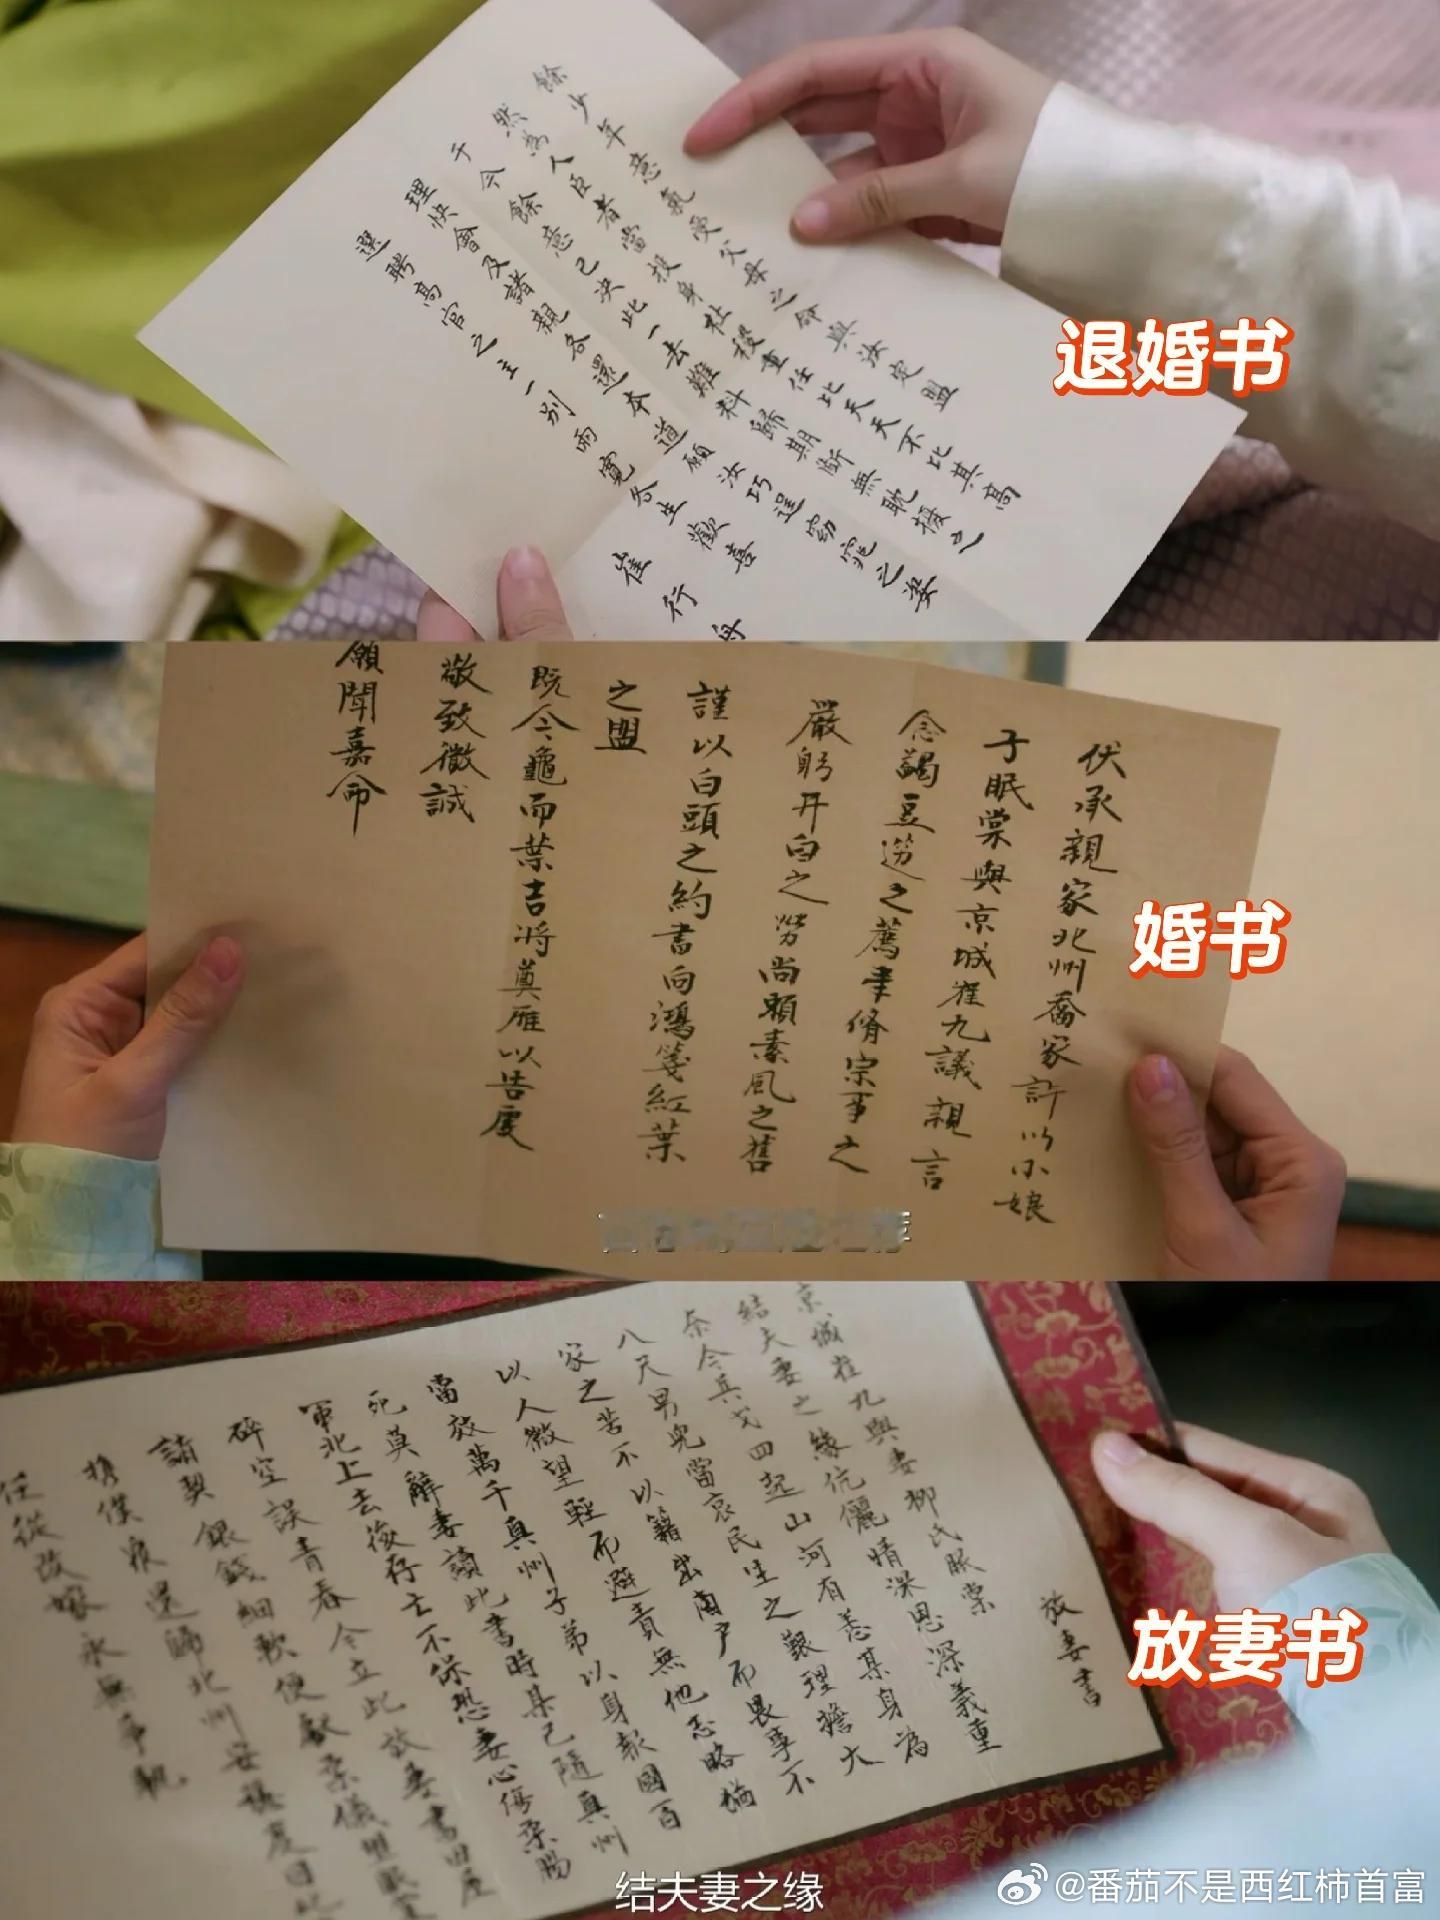 餘少年意氣受父母之命與汝定盟
然為人臣者當投身社稷重任比天天不比其高
于今餘意已決此一去難料歸期斷無耽擱之
理快會及諸親各還本道願汝巧逞窈窕之姿
選聘高官之主一別兩寬各生歡喜
崔行舟
退婚书
伏承親家北州喬家許以小娘
子眠棠與京城崔九議親言
念蠲豆籩之薦聿脩宗事之
嚴躬井臼之勞尚賴素風之舊
謹以白頭之約書向鴻箋紅葉
之盟
既令龜而葉吉將奠雁以告虔
敬致微誠
願聞嘉命
婚书
放妻書
京城崔九與妻柳氏眠棠
結夫妻之緣伉儷情深恩深義重
奈今兵戈四起山河有恙某身為
八尺男兒當哀民生之艱理擔大
家之苦不以籍出商户而畏事不
以人微望輕而避責無他志略猶
當效萬千真州子弟以身報國百
死莫辭妻讀此書時某已隨真州
軍北上去後存亡不保恐妻心傷柔腸
碎空誤青春今立此放妻書田產
請契銀錢細軟便獻柔儀
攜僕猴還歸北州安穩度日
任從改嫁永無爭執
放妻书
结夫妻之缘
@番茄不是西红柿首富